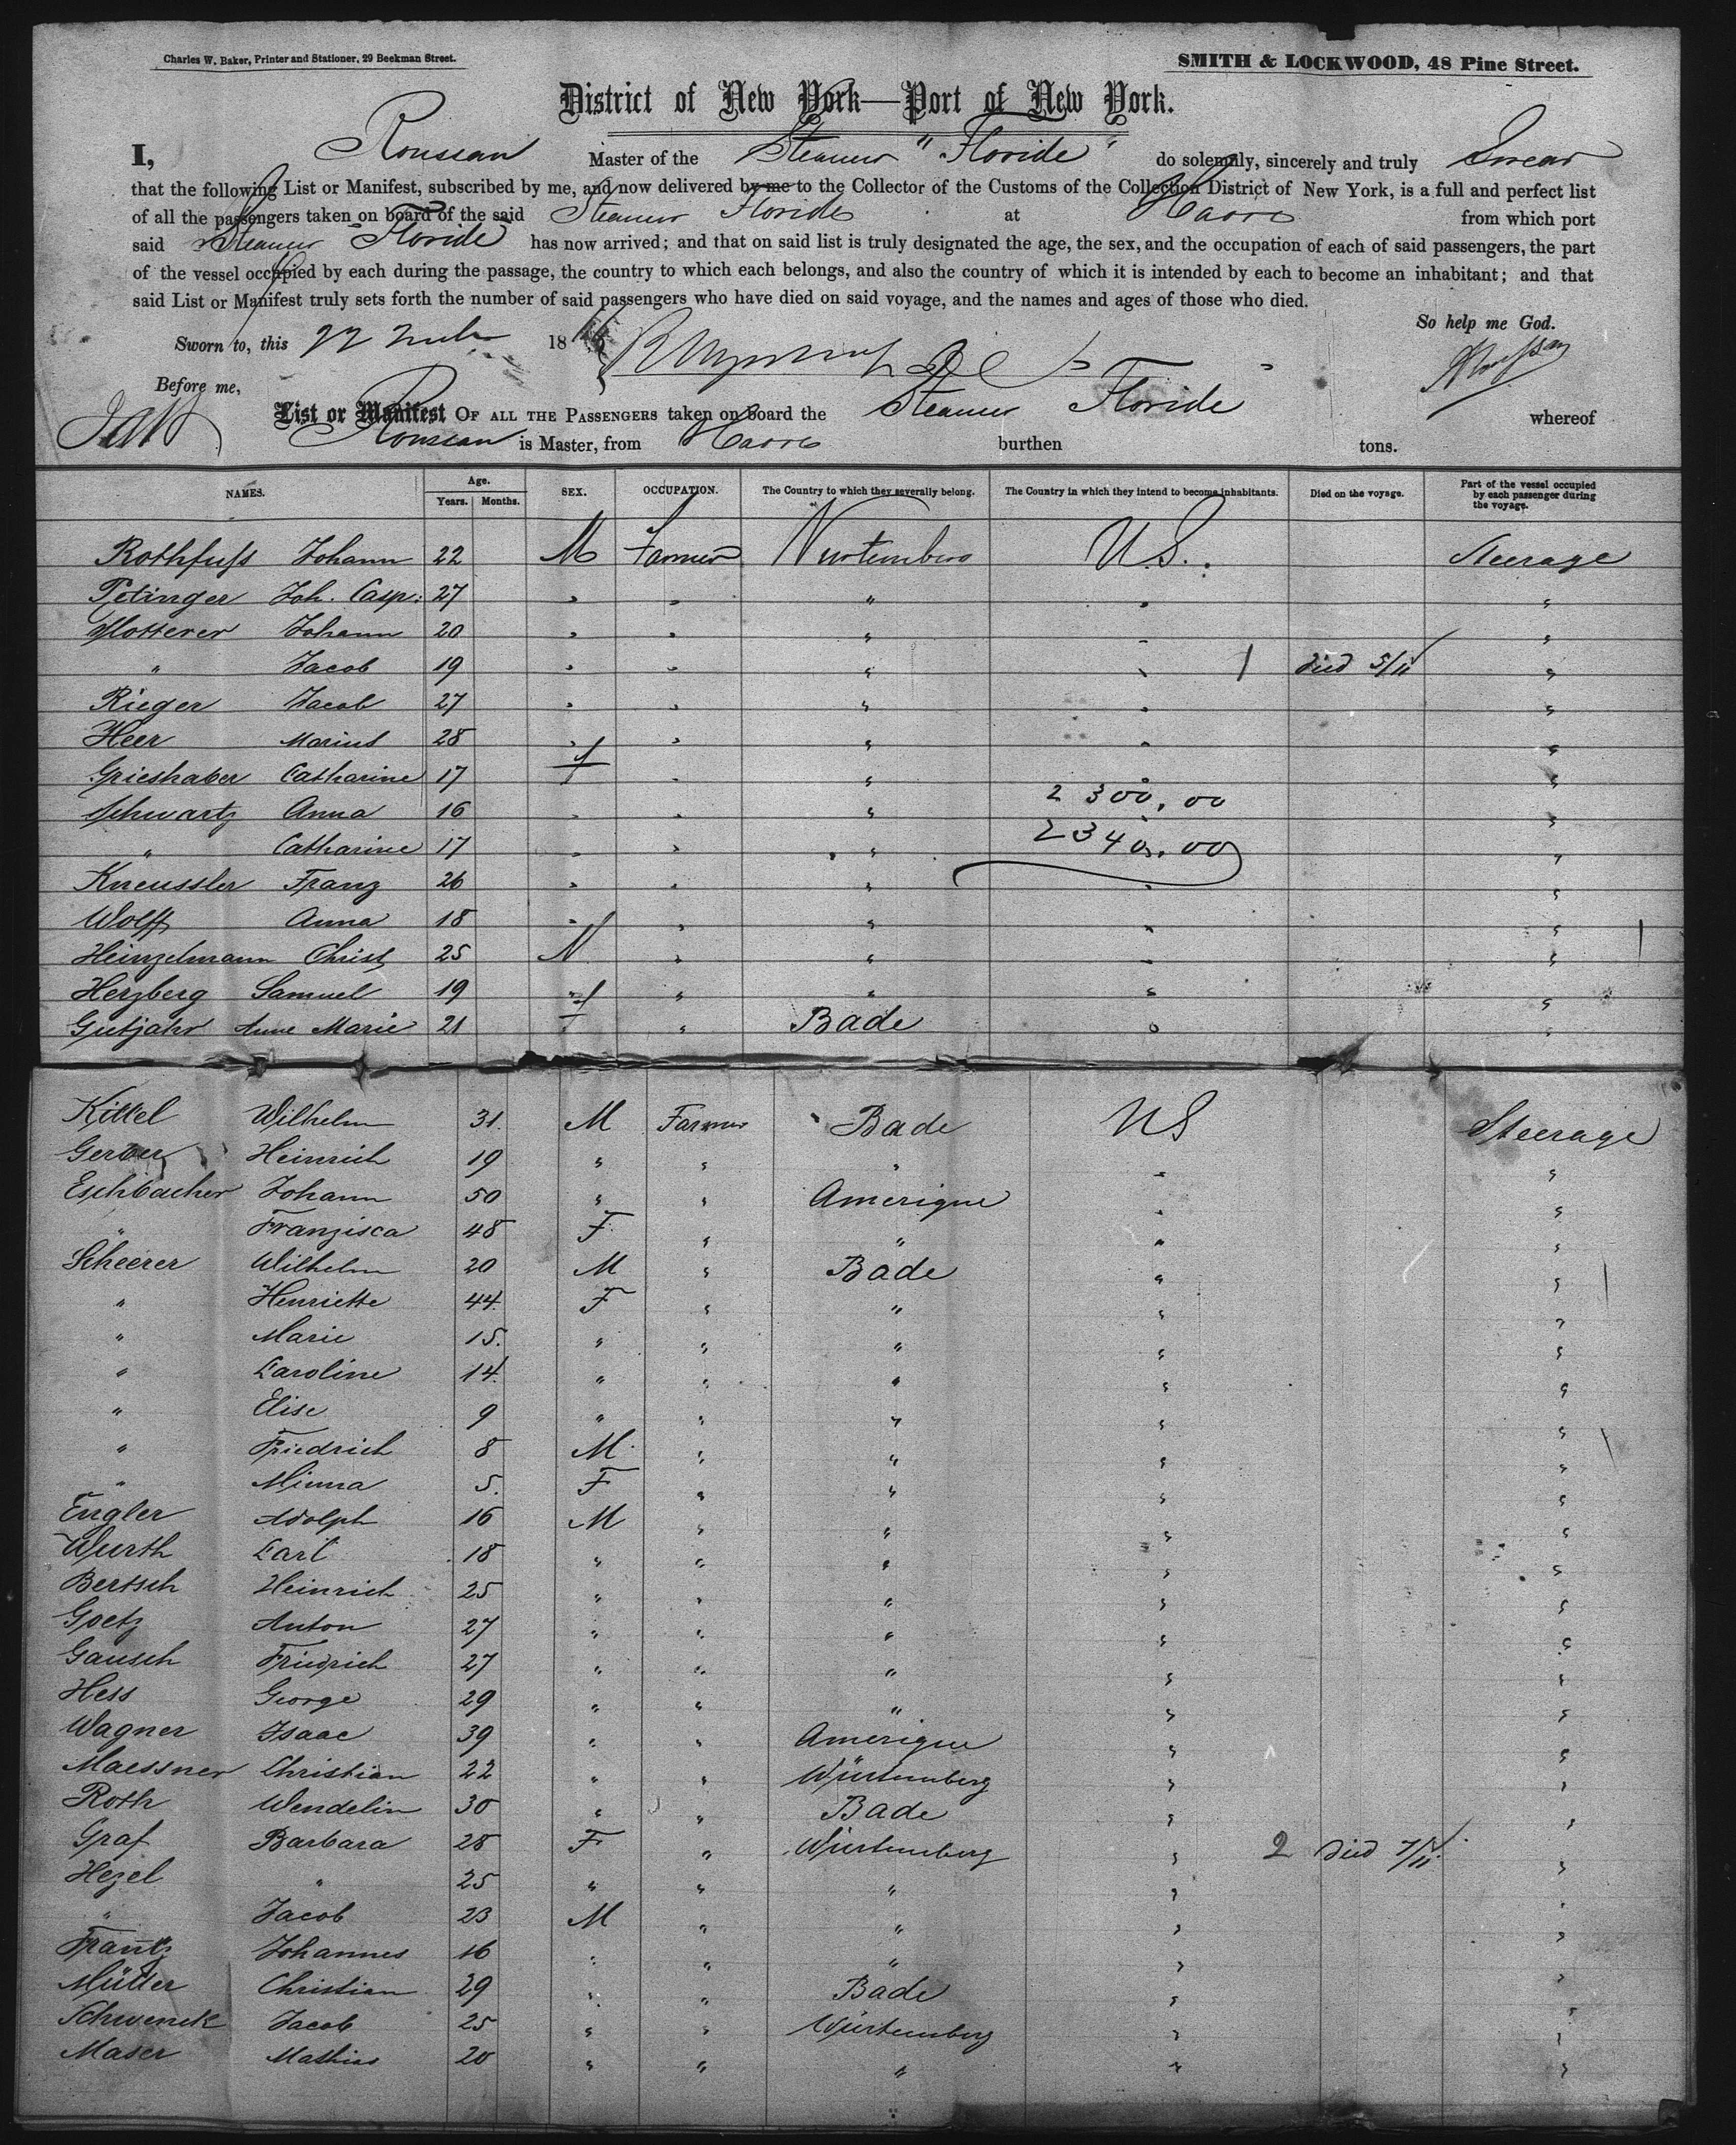 Charles W. Baker, Printer and Stationer, 29 Beekman Street.
SMITH & LOCKWOOD, 48 Pine Street.
District of New York—Port of New York.
I, Roussan Master of the Steamer "Floride" do solemnly, sincerely and truly Swear
that the following List or Manifest, subscribed by me, and now delivered by me to the Collector of the Customs of the Collection District of New York, is a full and perfect list
of all the passengers taken on board of the said Steamer Floride at Havre from which port
said Steamer Floride has now arrived; and that on said list is truly designated the age, the sex, and the occupation of each of said passengers, the part
of the vessel occupied by each during the passage, the country to which each belongs, and also the country of which it is intended by each to become an inhabitant; and that
said List or Manifest truly sets forth the number of said passengers who have died on said voyage, and the names and ages of those who died.
So help me God.
Sworn to, this 22 18
Before me,
List or Manifest OF ALL THE PASSENGERS taken on board the Steamer Floride whereof
Roussan is Master, from Havre burthen tons.
NAMES. Age. Years. Months. SEX. OCCUPATION. The Country to which they severally belong. The Country in which they intend to become inhabitants. Died on the voyage. Part of the vessel occupied by each passenger during the voyage.
Rothfuss Johann 22 M Farmer Wurtemberg U.S. Steerage
Petinger Joh. Casp: 27 " " " " "
Johann 20 " " " " "
" Jacob 19 " " " " 1 Died 5/11 "
Rieger Jacob 27 " " " " "
Heer Marius 28 " " " " "
Grieshaber Catharine 17 f " " " "
2300,00
Schwartz Anna 16 " " " " "
2340,00
" Catharine 17 " " " " "
Kneussler Franz 26 " " " " "
Wolff Anna 18 f " " " "
Heinzelmann Christ 25 M " " " "
Herzberg Samuel 19 " " " " "
Gutjahr Anne Marie 21 f " Bade " "
Kittel Wilhelm 31. M Farmer Bade US Steerage
Gerber Heinrich 19 " " " " "
Eschbacher Johann 50 " " Amerique " "
" Franzisca 48 F " " " "
Scheerer Wilhelm 20 M " Bade " "
" Henriette 44. F " " " "
" Marie 15. " " " " "
" Caroline 14. " " " " "
" Elise 9 " " " " "
" Friedrich 8 M. " " " "
" Minna 5. F " " " "
Engler Adolph 16 M " " " "
Wurth Carl 18 " " " " "
Bertsch Heinrich 25 " " " " "
Goetz Anton 27 " " " " "
Gausch Friedrich 27 " " " " "
Hess George 29 " " " " "
Wagner Isaac 39 " " Amerique " "
Maessner Christian 22 " " Würtemberg " "
Roth Wendelin 30 " " Bade " "
Graf Barbara 28 F " Würtemberg " 2 Died 7/11. "
Hezel " 25 " " " " "
" Jacob 23 M " " " "
Frantz Johannes 16 " " " " "
Müller Christian 29 " " Bade " "
Schwenck Jacob 25 " " Würtemberg " "
Maser Mathias 20 " " " " "